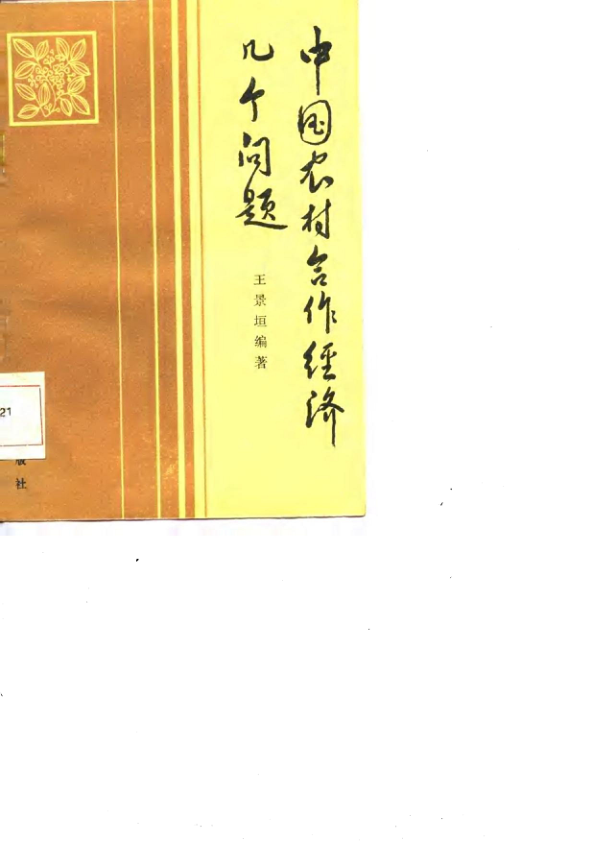 中国农村合作经济
几个问题
王景垣编著
21
版社